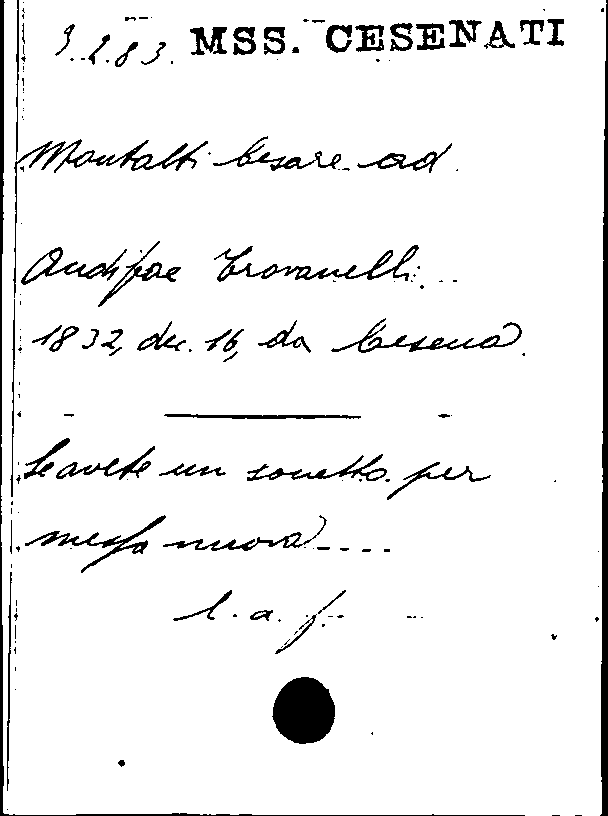 9.2.83. MSS. CESENATI
Montalti Cesare ad
Andifae Trovanelli.
1832, dec. 16, da Cesena
Se avete un sonetto per
messa nuova....
l. a. f.